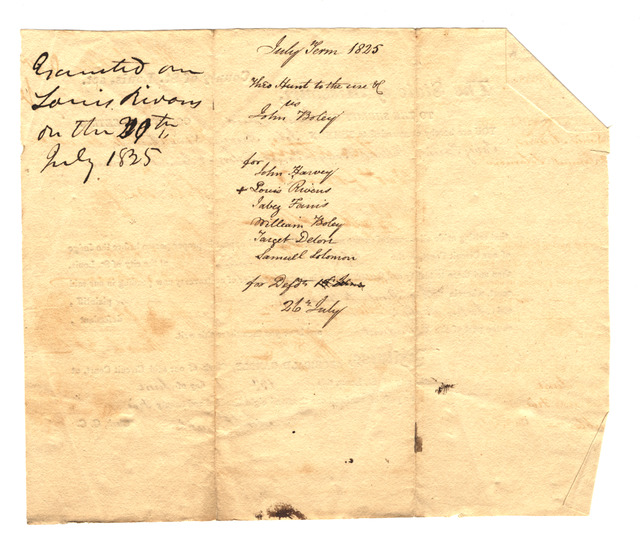 Executed on
Louis Rivons
on the 20th
July 1825
July Term 1825
Theo Hunt to the use &c
vs
John Boley
for
John Harvey
+ Louis Rivons
Jabez Farris
William Boley
Samuell Solomon
for Defdt
26th July